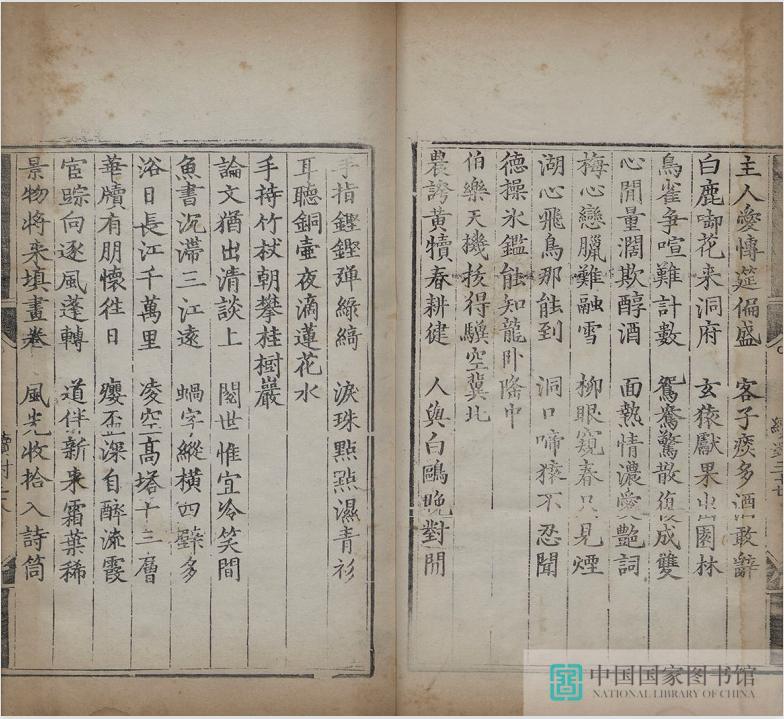 主人愛慱筵偏盛 客子痰多酒敢辭
白鹿啣花来洞府 玄猿獻果出園林
鳥雀爭喧難計數 鴛鴦驚散復成雙
心閒量濶欺醇酒 面熱情濃愛艷詞
梅心戀臘難融雪 柳眼窺春只見煙
湖心飛鳥那能到 洞口啼猿不忍聞
德操氷鑑能知龍卧隆中
伯樂天機技得驥空冀北
農誇黄犢春耕健 人與白鷗晚對閒
手指鏗鏗弹綠綺 淚珠點點濕青衫
耳聽銅壷夜滴蓮花水
手持竹杖朝攀桂樹巖
論文猶出清談上 閱世惟宜冷笑間
魚書沉滯三江遠 蝸字縱橫四壁多
浴日長江千萬里 凌空髙塔十三層
華牘有朋懷徃日 癭盃深自酹流霞
宦踪向逐風蓬轉 道伴新来霜葉稀
景物將来填畫卷 風光收拾入詩筒
中国国家图书馆
NATIONAL LIBRARY OF CHINA